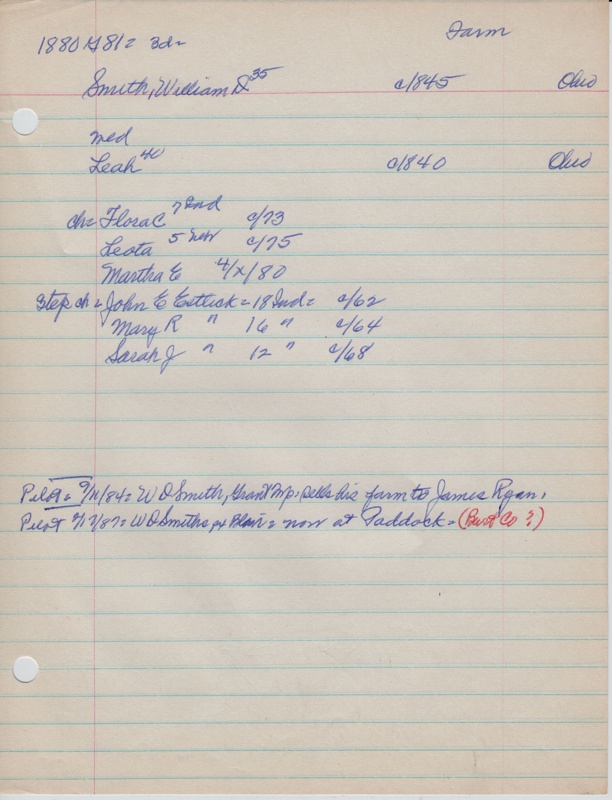 Farm
1880 #81= 3d=
Smith, William D 35 c/1845 Ohio
med
Leah 40 c/1840 Ohio
ch= Flora C 7 Ind c/73
Leota 5 c/75
Martha E 4/x/80
Step ch= John E Estlick = 18 Ind = c/62
Mary R " 16 " c/64
Sarah J " 12 " c/68
Pilot = 9/11/84= W D Smith, Grant Twp. sells his farm to James Ryan.
Pilot W D Smith Blair = now at Paddock = ( Co ?)